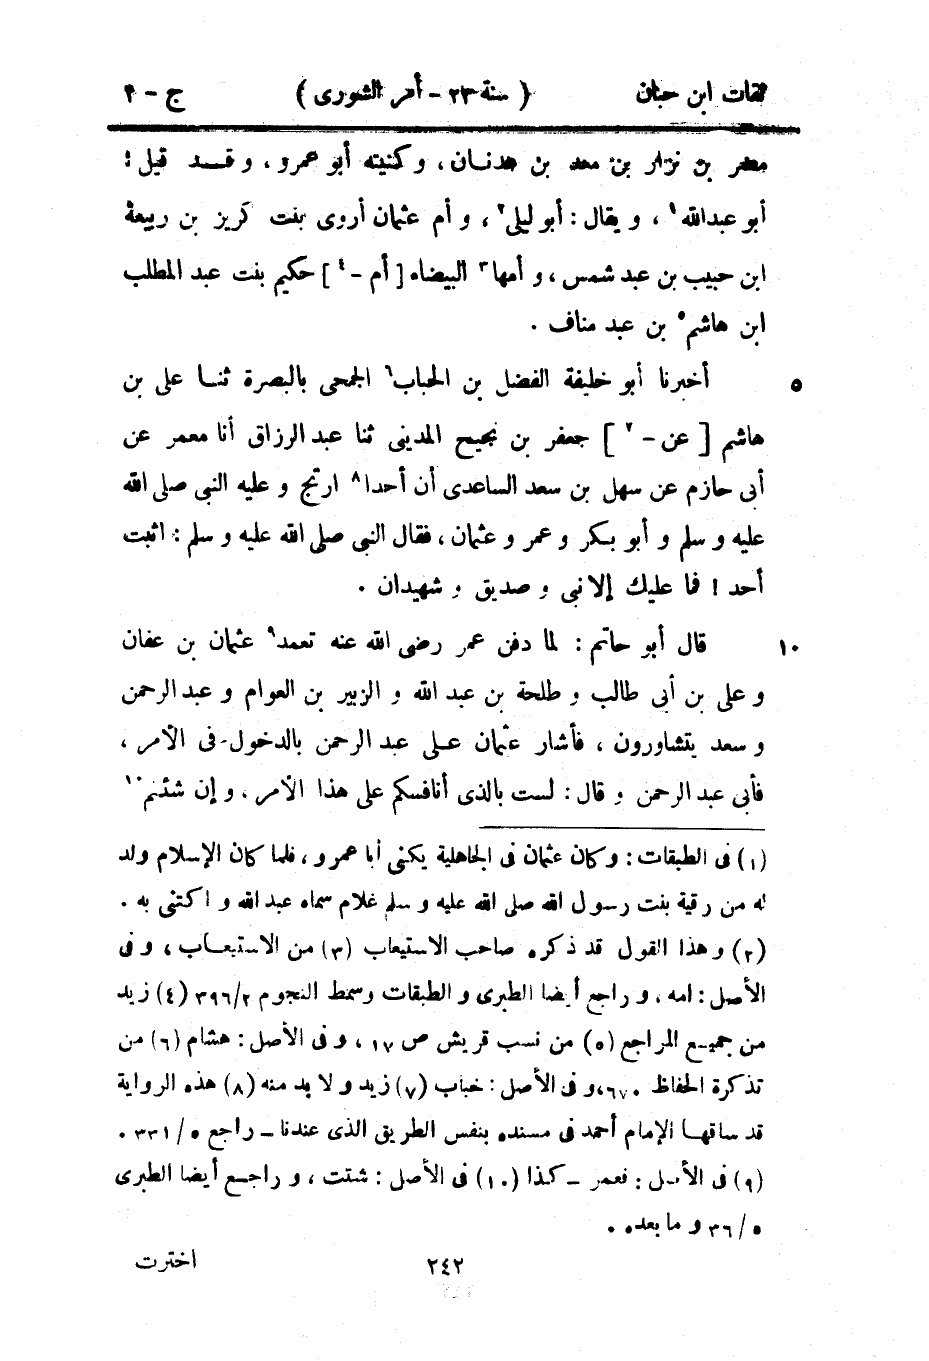 ثقات ابن حبان ( سنة ٢٣ - أمر الشورى ) ج - ٢
مضر بن نزار بن معد بن عدنان ، و كنيته أبو عمرو ، و قـد قيل :
أبو عبدالله١ ، و يقال : أبو ليلى٢ ، و أم عثمان أروى بنت كريز بن ربيعة
ابن حبيب بن عبد شمس ، و أمها٣ البيضاء [ أم - ٤ ] حكيم بنت عبد المطلب
ابن هاشم٥ بن عبد مناف .
٥ أخبرنا أبو خليفة الفضل بن الحباب٦ الجمحى بالبصرة ثنا على بن
هاشم [ عن - ٧ ] جعفر بن نجيح المدينى ثنا عبد الرزاق أنا معمر عن
أبى حازم عن سهل بن سعد الساعدى أن أحدا٨ ارتج و عليه النبى صلى الله
عليه و سلم و أبو بكر و عمر و عثمان ، فقال النبى صلى الله عليه و سلم : اثبت
أحد ! فما عليك إلا نبى و صديق و شهيدان .
١٠ قال أبو حاتم : لما دفن عمر رضى الله عنه تعمد٩ عثمان بن عفان
و على بن أبى طالب و طلحة بن عبد الله و الزبير بن العوام و عبد الرحمن
و سعد يتشاورون ، فأشار عثمان على عبد الرحمن بالدخول فى الأمر ،
فأبى عبد الرحمن و قال : لست بالذى أنافسكم على هذا الأمر ، و إن شئتم١٠
(١) فى الطبقات : و كان عثمان فى الجاهلية يكنى أبا عمرو ، فلما كان الإسلام ولد
له من رقية بنت رسول الله صلى الله عليه و سلم غلام سماه عبد الله و اكتنى به .
(٢) و هذا القول قد ذكره صاحب الاستيعاب (٣) من الاستيعاب ، و فى
الأصل : امه ، و راجع أيضا الطبرى و الطبقات وسمط النجوم ٢/ ٣٩٦ (٤) زيد
من جميع المراجع (٥) من نسب قريش ص ١٧ ، و فى الأصل : هشام (٦) من
تذكرة الحفاظ ٦٧٠، و فى الأصل : خباب (٧) زيد و لا بد منه (٨) هذه الرواية
قد ساقها الإمام أحمد فى مسنده بنفس الطريق الذى عندنا - راجع ٥ / ٣٣١ .
(٩) فى الأصل : فعمر - كذا (١٠) فى الأصل : شئت ، و راجع أيضا الطبرى
٥ / ٣٦ و ما بعده .
٢٤٢ اخترت